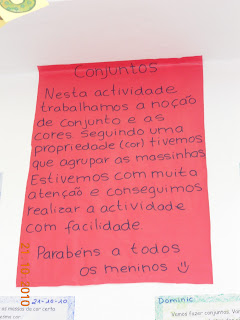 Conjuntos
Nesta actividade
trabalhamos a noção
de conjunto e as
cores. Seguindo uma
propriedade (cor) tivemos
que agrupar as massinhas.
Estivemos com muita
atenção e conseguimos
realizar a actividade
com facilidade.
Parabéns a todos
os meninos
21-10-10
as massas da cor certa
Dominic
Vamos fazer: conjuntos. Vo